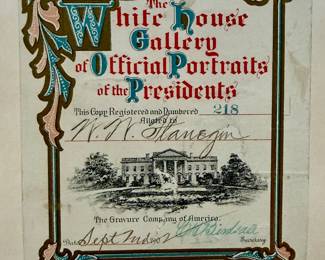 The
White House
Gallery
of Official Portraits
of the Presidents
This Copy Registered and Numbered 218
Allotted to
W. W.
The Gravure Company of America
Date Sept
Secretary